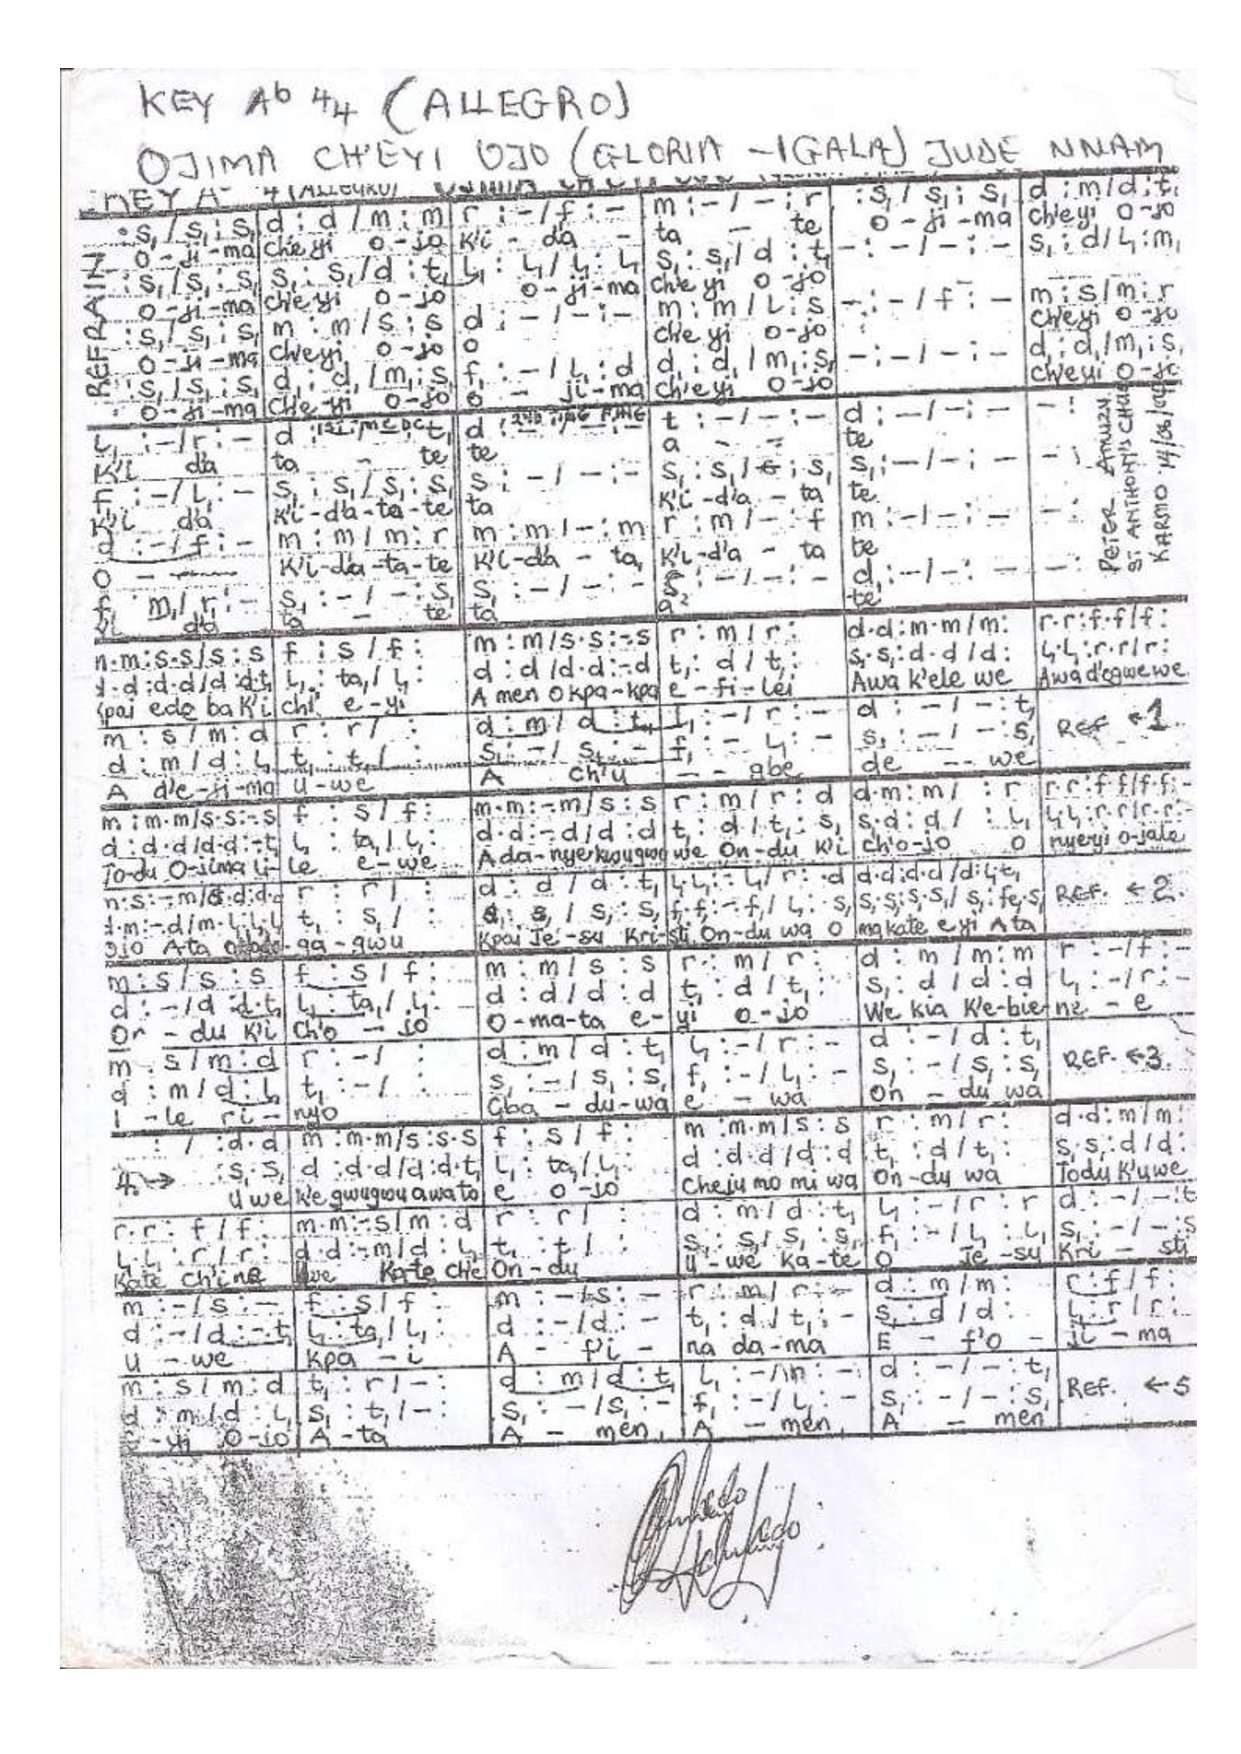 KEY Ab 4/4 (ALLEGRO)
OJIMA CH'EYI OJO (GLORIA - IGALA) JUDE NNAM
REFRAIN
:s, / s, : s, | d : d / m : m | r : - / f : - | m : - / - : r | : s, / s, : s, | d : m / d : t,
O - ji - ma | ch'eyi o - jo | K'i - da - | ta - te | o - ji - ma | ch'eyi o - jo
: s, / s, : s, | s, : s, / d : t, | l, : l, / l, : l, | s, : s, / d : t, | - : - / - : - | s, : d / l, : m,
O - ji - ma | ch'e yi o - jo | o - ji - ma | ch'e yi o - jo
: s, / s, : s, | m : m / s : s | d : - / - : - | m : m / l : s | - : - / f : - | m : s / m : r
O - ji - ma | ch'eyi o - jo | o | ch'e yi o - jo | ch'eyi o - jo
: s, / s, : s, | d, : d, / m, : s, | f, : - / l, : d | d, : d, / m, : s, | - : - / - : - | d, : d, / m, : s,
O - ji - ma | ch'e yi o - jo | o - ji - ma | ch'eyi o - jo | ch'eyi o - jo
l, : - / r : - | d : t, | d | t : - / - : - | d : - / - : - | - :
K'i d'a | ta - te | te | a - - | te
: - / l, : - | s, : s, / s, : s, | s, : - / - : - | s, : s, / : s, | s, : - / - : - | - :
K'i d'a | K'i - d'a - ta - te | ta | K'i - d'a - ta | te
d : - / f : - | m : m / m : r | m : m / - : m | r : m / - : f | m : - / - : - | - :
O - | K'i - d'a - ta - te | K'i - d'a - ta, | K'i - d'a - ta | te
f, m, / r, : - | s, : - / - : s, | s, : - / - : - | : - / - : - | d, : - / - : - | - :
d'a | ta - te | ta | te
PETER AMUZU.
ST ANTHONY'S
KARMO
m : s - s / s : s | f : s / f : | m : m / s · s : - s | r : m / r : | d · d : m · m / m : | r · r : f · f / f :
d : d · d / d : d t, | l, : ta, / l, : | d : d / d · d : - d | t, : d / t, : | s, · s, : d · d / d : | l, · l, : r · r / r :
kpai ede ba K'i | chi e - yi | A men Okpa - kpa | e - fi - lei | Awa k'ele we | Awa d'egwewe
m : s / m : d | r : r / : | d : m / d : t, | l, : - / r : - | d : - / - : t, | REF ←1.
d : m / d : l, | t, : t, / : | s, : - / s, : - | f, : - l, : - | s, : - / - : s,
A d'e - ji - ma | u - we | A ch'u | - - gbe | de - - we
m : m · m / s · s : - s | f : s / f : | m · m : - m / s : s | r : m / r : d | d · m : m / : r | r · r : f · f / f · f : -
d : d · d / d · d : - t, | l, : ta, / l, : | d · d : - d / d : d | t, : d / t, : s, | s, · d : d / : l, | l, · l, : r · r / r · r : -
To - du O - jima u - | le e - we | Ada - nyekwugwo | we On - du K'i | ch'o - jo o | nyeyi o - jale
r : r / : | d : d / d : t, | l, · l, : - l, / r : · d | d · d : d · d / d : l, t, | REF. ←2.
t, : s, / : | s, : s, / s, : s, | f, · f, : - f, / l, : · s, | s, · s, : s, · s, / s, : fe, · s,
ojo Ata | - ga - gwu | Kpai Je - su Kri - | sti On - du wa o | makate eyi Ata
m : s / s : s | f : s / f : | m : m / s : s | r : m / r : | d : m / m : m | r : - / f : -
d : - / d : d · t, | l, : ta, / l, : | d : d / d : d | t, : d / t, : | s, : d / d : d | l, : - / r : -
On - du K'i | Ch'o - jo | O - ma - ta e - | yi o - jo | We kia K'e - bie - | ne - e
m : s / m : d | r : - / : | d : m / d : t, | l, : - / r : - | d : - / d : t, | REF. ←3.
d : m / d : l, | t, : - / : | s, : - / s, : s, | f, : - / l, : - | s, : - / s, : s,
I - le ri - | nyo | Gba - du - wa | e - wa | On - du wa
: / : d · d | m : m · m / s : s · s | f : s / f : | m : m · m / s : s | r : m / r : | d · d : m / m :
4.→ : s, · s, | d : d · d / d : d · t, | l, : ta, / l, : | d : d · d / d : d | t, : d / t, : | s, · s, : d / d :
U we | k'e gwugwu awa to | e o - jo | Cheju mo mi wa | On - du wa | Todu K'uwe
r · r : f / f : | m · m : - s / m : d | r : r / : | d : m / d : t, | l, : - / r : r | d : - / - : t
l, · l, : r / r : | d · d : - m / d : l, | t, : t, / : | s, : s, / s, : s, | f, : - / l, : l, | s, : - / - : s
Kate Ch'ine | Uwe Kate che | On - du | U - we ka - te | O Je - su | Kri - sti
m : - / s : - | f : s / f : | m : - / s : - | r : m / r : - | d : m / m : | r : f / f :
d : - / d : - t, | l, : ta, / l, : | d : - / d : - | t, : d / t, : - | s, : d / d : | l, : r / r :
U - we | Kpa - i | A - fi - | na da - ma | E - f'o - | ji - ma
m : s / m : d | t, : r / - : | d : m / d : t, | l, : - / : - | d : - / - : t, | REF. ←5
d : m / d : l, | s, : t, / - : | s, : - / s, : - | f, : - / l, : - | s, : - / - : s,
- yi O - jo | A - ta | A - men, | A - men, | A - men